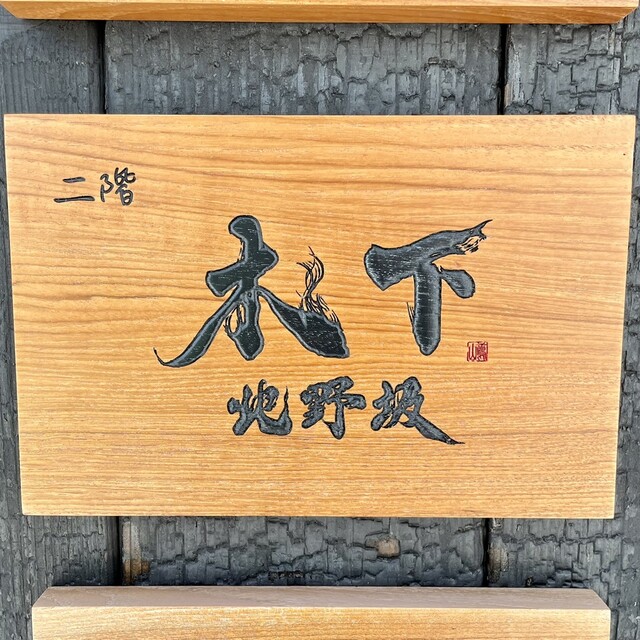 二階
木下
北野坂